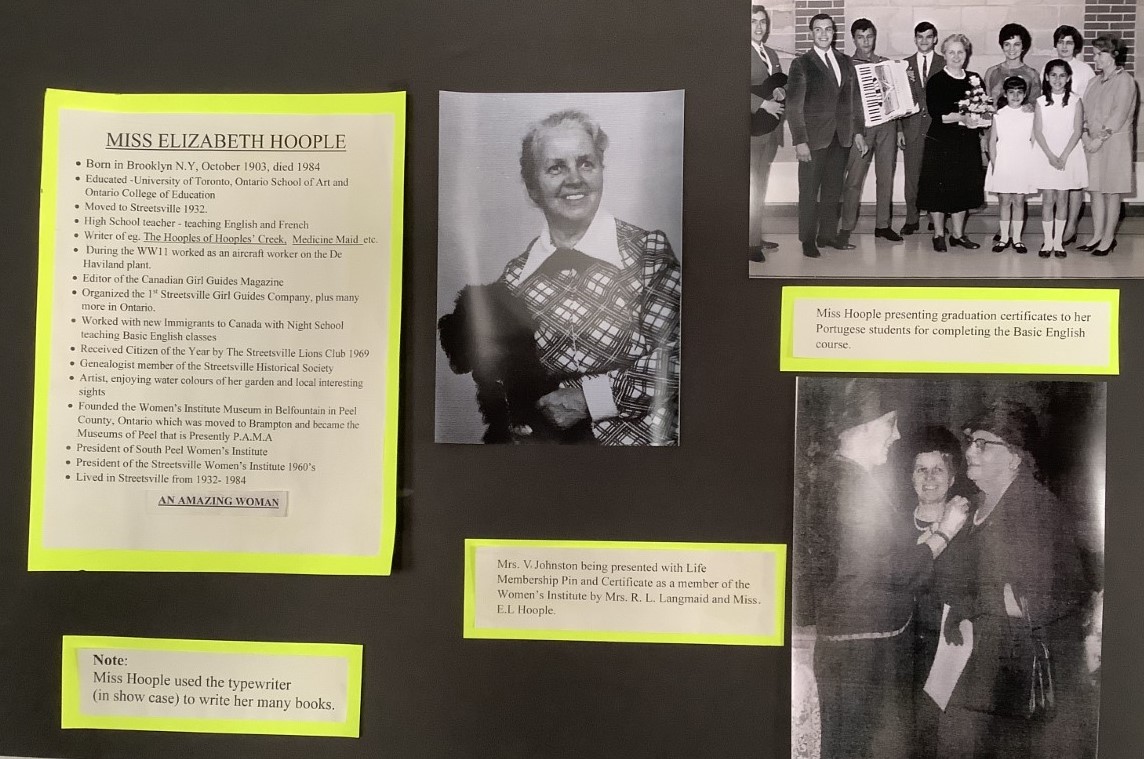 MISS ELIZABETH HOOPLE
• Born in Brooklyn N.Y, October 1903, died 1984
• Educated -University of Toronto, Ontario School of Art and
Ontario College of Education
• Moved to Streetsville 1932.
• High School teacher - teaching English and French
• Writer of eg. The Hooples of Hooples' Creek, Medicine Maid etc.
• During the WW11 worked as an aircraft worker on the De
Haviland plant.
• Editor of the Canadian Girl Guides Magazine
• Organized the 1st Streetsville Girl Guides Company, plus many
more in Ontario.
• Worked with new Immigrants to Canada with Night School
teaching Basic English classes
• Received Citizen of the Year by The Streetsville Lions Club 1969
• Genealogist member of the Streetsville Historical Society
• Artist, enjoying water colours of her garden and local interesting
sights
• Founded the Women's Institute Museum in Belfountain in Peel
County, Ontario which was moved to Brampton and became the
Museums of Peel that is Presently P.A.M.A
• President of South Peel Women's Institute
• President of the Streetsville Women's Institute 1960's
• Lived in Streetsville from 1932- 1984
AN AMAZING WOMAN
Note:
Miss Hoople used the typewriter
(in show case) to write her many books.
Mrs. V. Johnston being presented with Life
Membership Pin and Certificate as a member of the
Women's Institute by Mrs. R. L. Langmaid and Miss.
E.L Hoople.
Miss Hoople presenting graduation certificates to her
Portugese students for completing the Basic English
course.